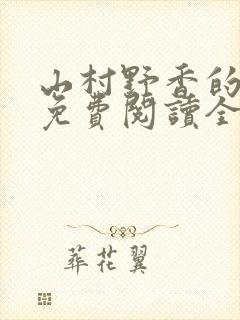 山村野香的
免費閱讀全
葬花翼